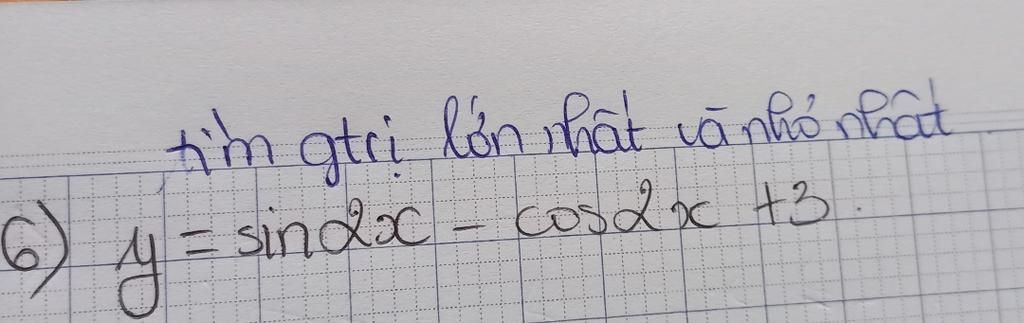 tìm gtrị lớn nhất và nhỏ nhất
6) y = sin2x - cos2x +3.